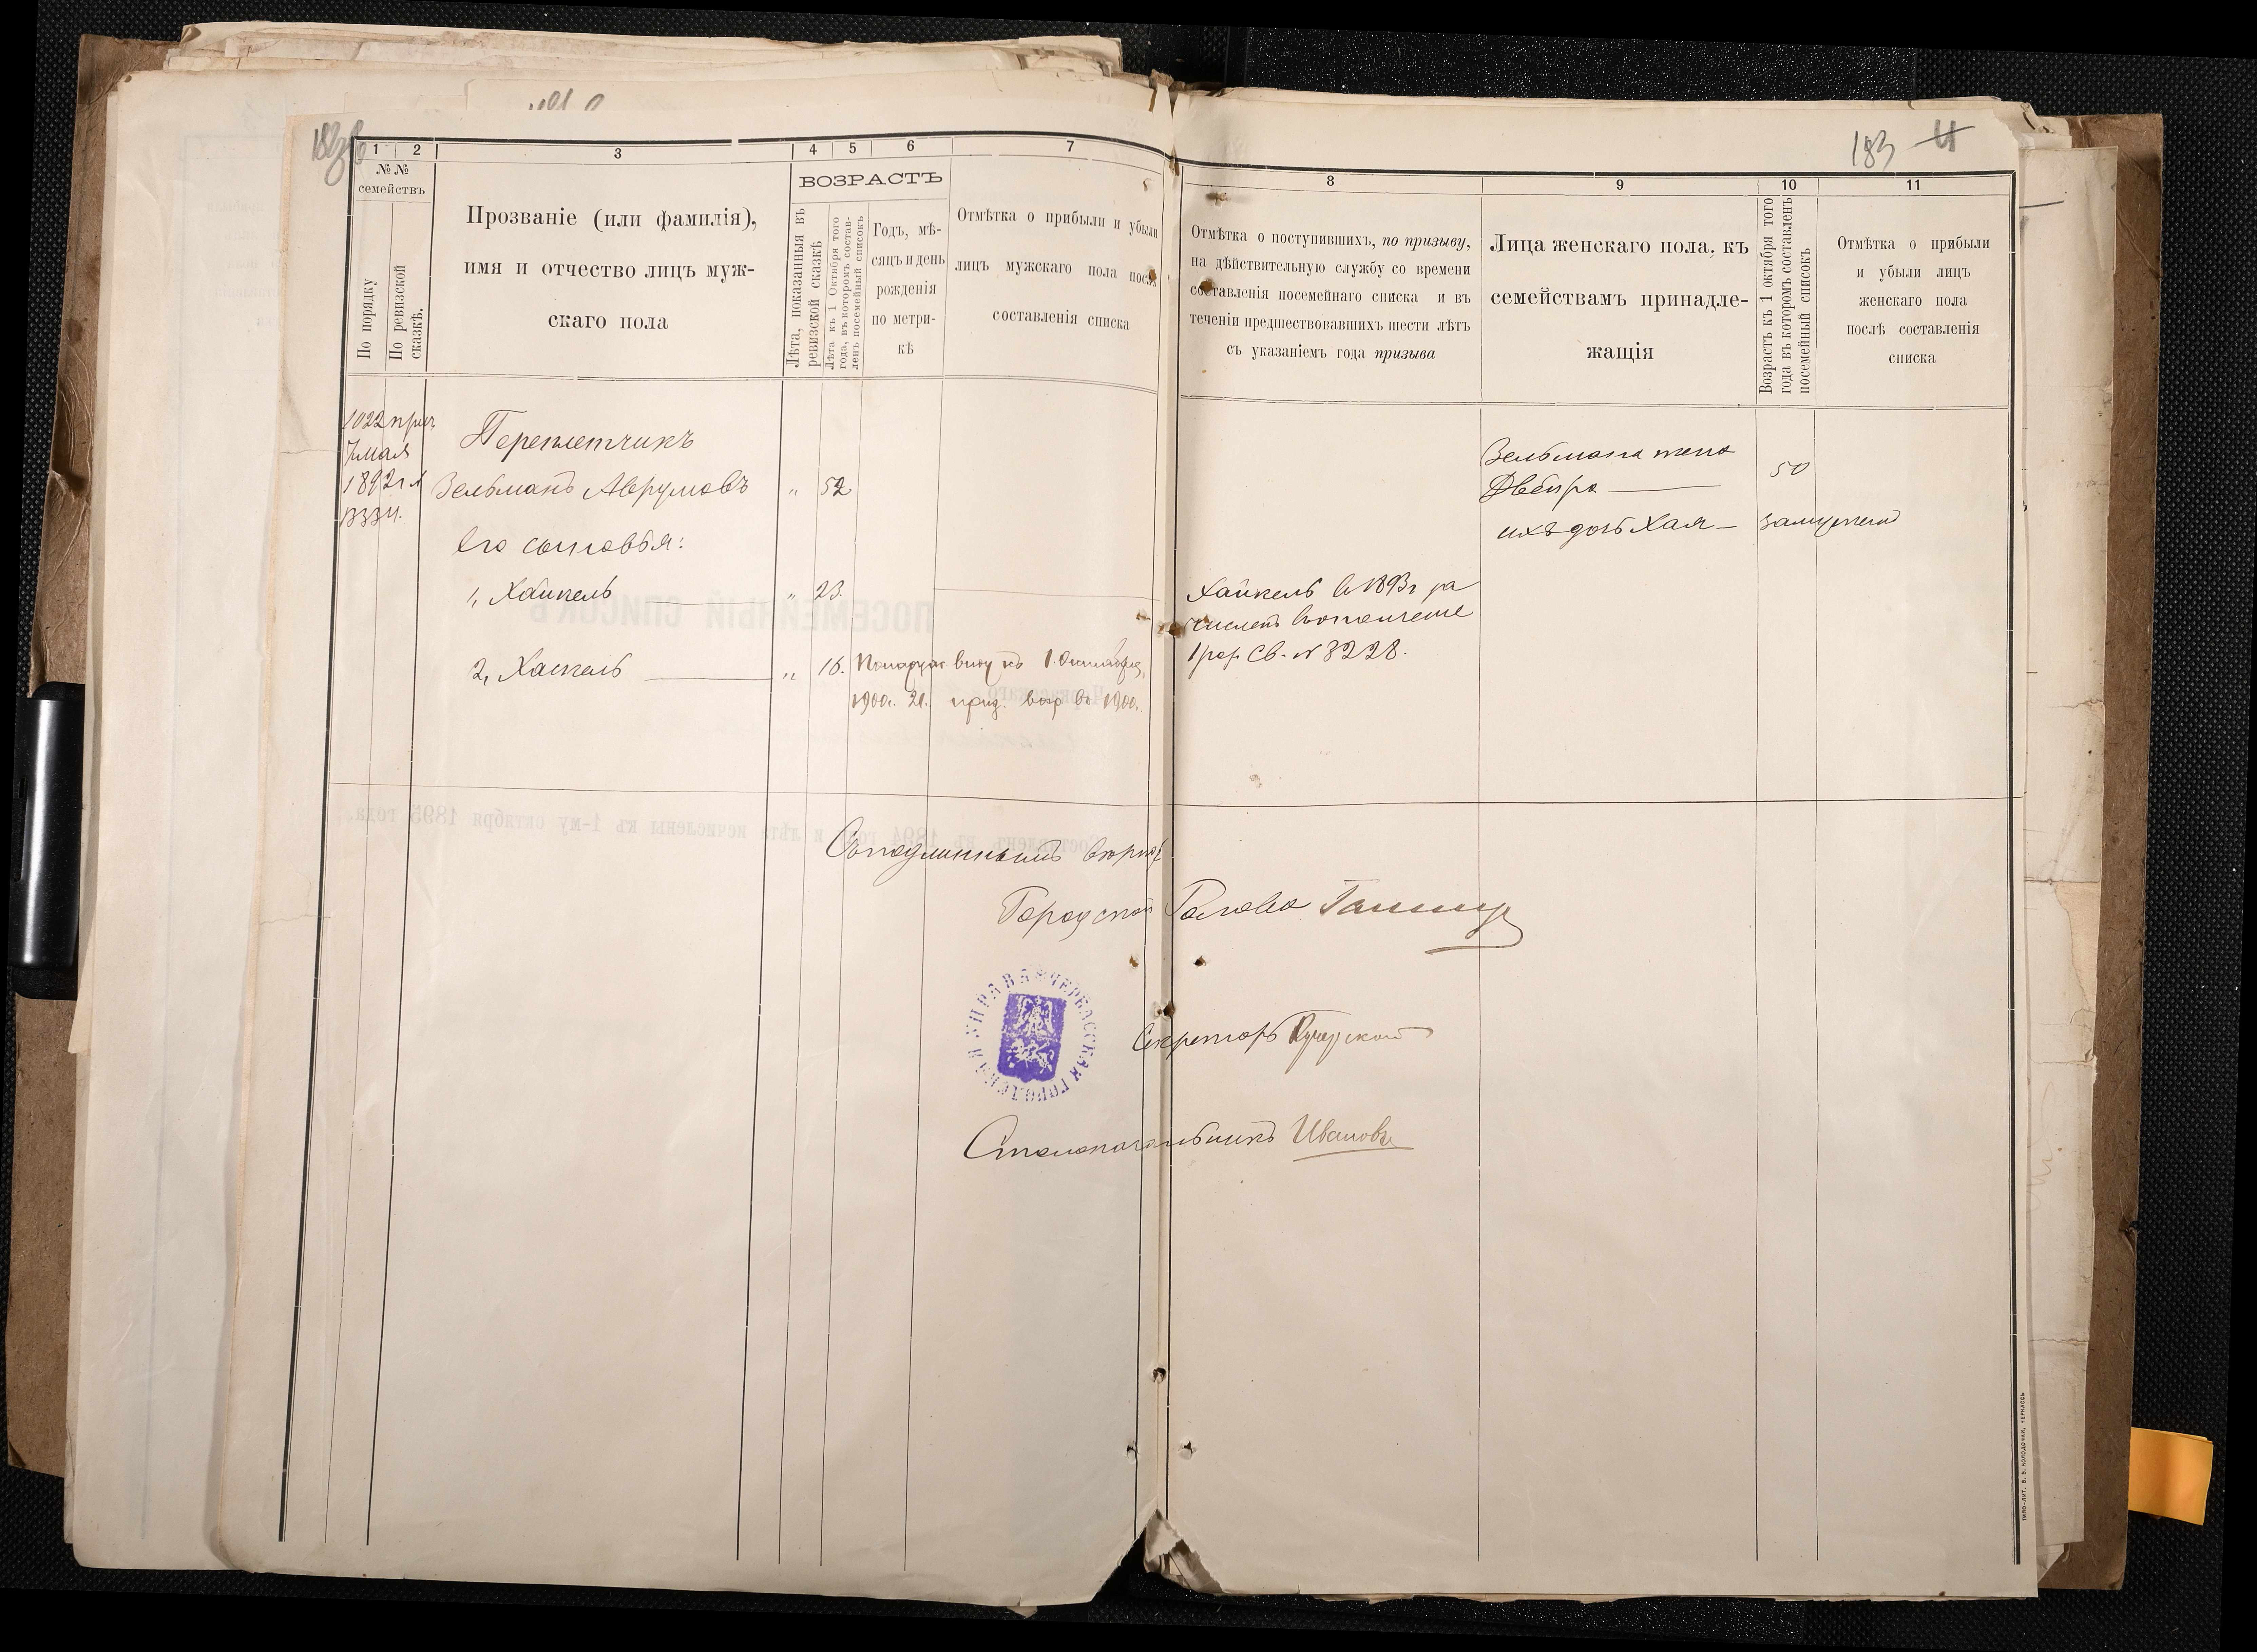 183
1
2
3
4
5
6
7
№ №
семействъ
По порядку
По ревизской
сказкѣ.
Прозваніе (или фамилія),
имя и отчество лицъ муж-
скаго пола
ВОЗРАСТЪ
Лѣта, показанныя въ
ревизской сказкѣ
Лѣта къ 1 Октября того
года, въ которомъ состав-
ленъ посемейный списокъ
Годъ, мѣ-
сяцъ и день
рожденія
по метри-
кѣ
Отмѣтка о прибыли и убыли
лицъ мужскаго пола послѣ
составленія списка
1022
7 мая
1892 г
Переплетчикъ
Зельманъ Аврумовъ „ 52
Его сыновья:
1, Хайкель „ 23.
2, Хаскель „ 16.
къ 1 Октября
1900 г. 21. приз. въ 1900 г.
Съ подлиннымъ вѣрно:
Городской Голова
ЧЕРКАССКАЯ ГОРОДСКАЯ УПРАВА
Секретарь
Столоначальникъ Ивановъ
183
8
9
10
11
Отмѣтка о поступившихъ, по призыву,
на дѣйствительную службу со времени
составленія посемейнаго списка и въ
теченіи предшествовавшихъ шести лѣтъ
съ указаніемъ года призыва
Лица женскаго пола, къ
семействамъ принадле-
жащія
Возрастъ къ 1 октября того
года въ которомъ составленъ
посемейный списокъ
Отмѣтка о прибыли
и убыли лицъ
женскаго пола
послѣ составленія
списка
Зельмана жена
Двейра 50
ихъ дочь Хая — замужемъ
Хайкель въ 1893 г за
численъ въ ополченіе
1 раз. Св. № 3228.
ТИПО-ЛИТ. В. В. КОЛОДОЧКИ, ЧЕРКАССЫ
ПОСЕМЕЙНЫЙ СПИСОКЪ
Составленъ въ 1894 году и лѣта исчислены къ 1-му октября 1895 года.